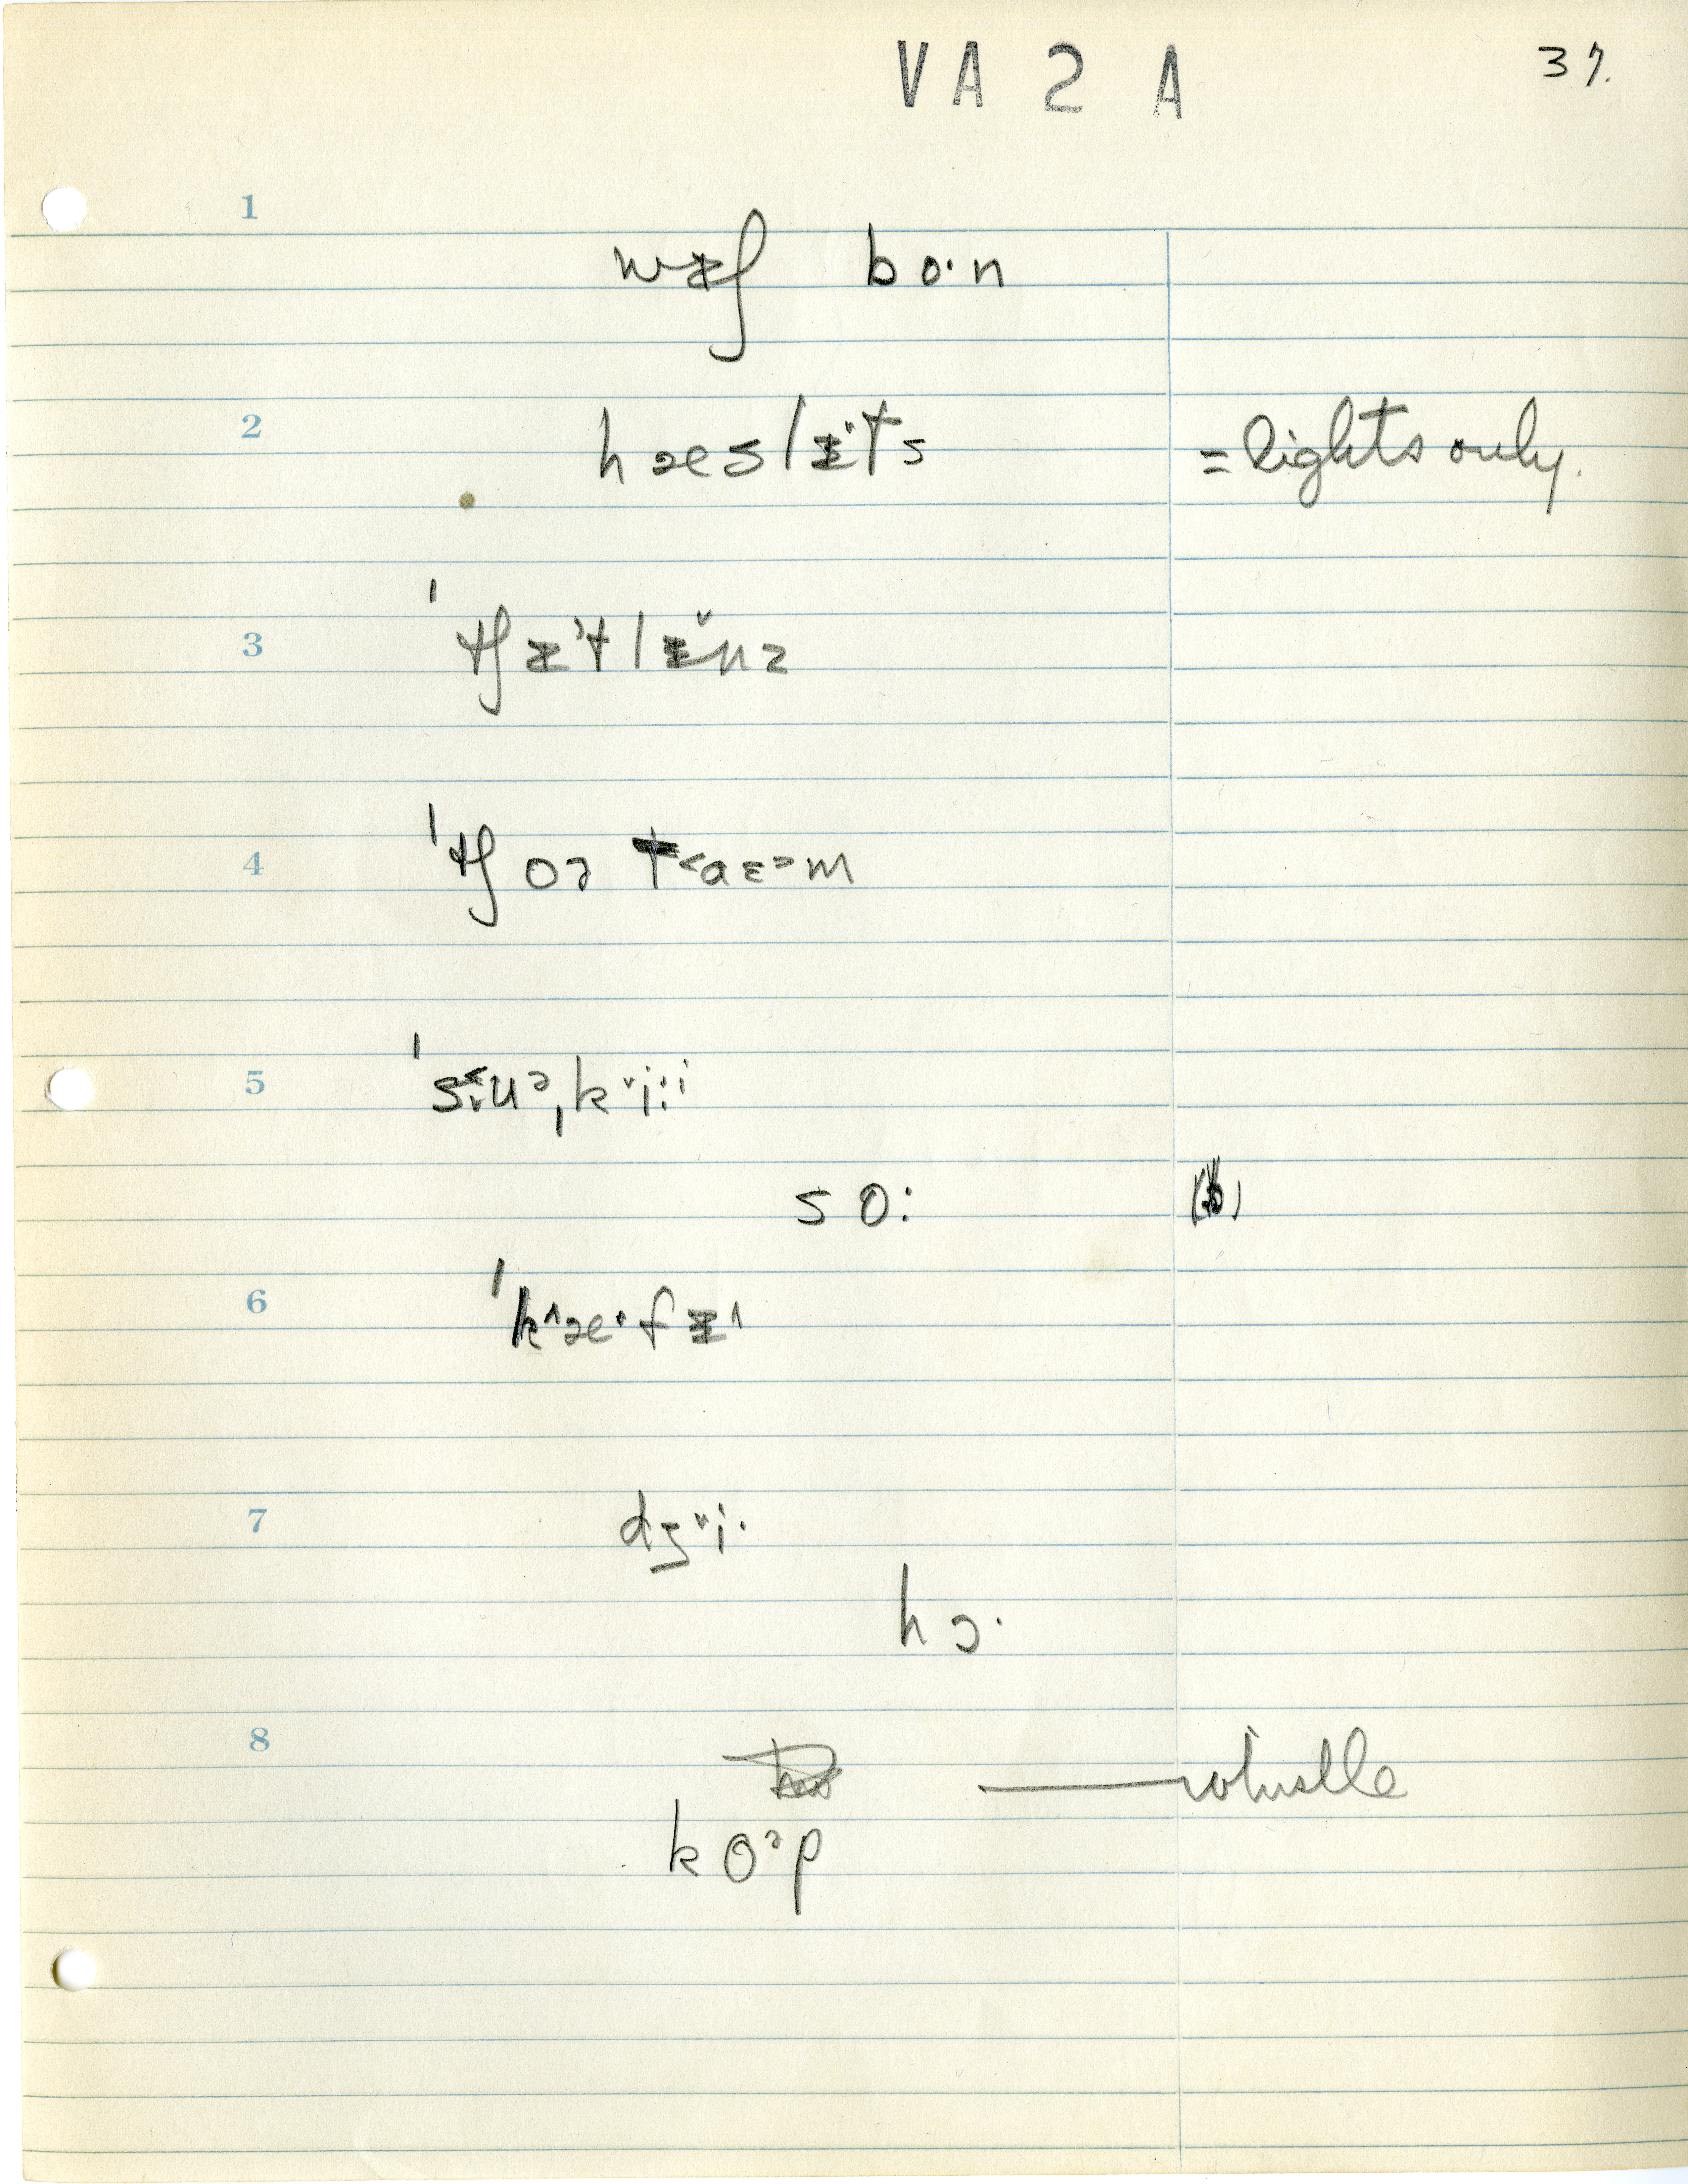 VA 2 A
37.
1
wᵻʃ bo·n
2
hæslᵻ·ts = lights only.
3
ˈtʃᵻ˃tlᵻ˅nz
4
ˈtʃoə t˂aɛ˃m
5
ˈsi˂ᵥu˃ˌk˅iːi
so: (b)
6
ˈk^æ·fᵻ^
7
dʒ˅i·
hɔ·
8
whistle
koᵊp